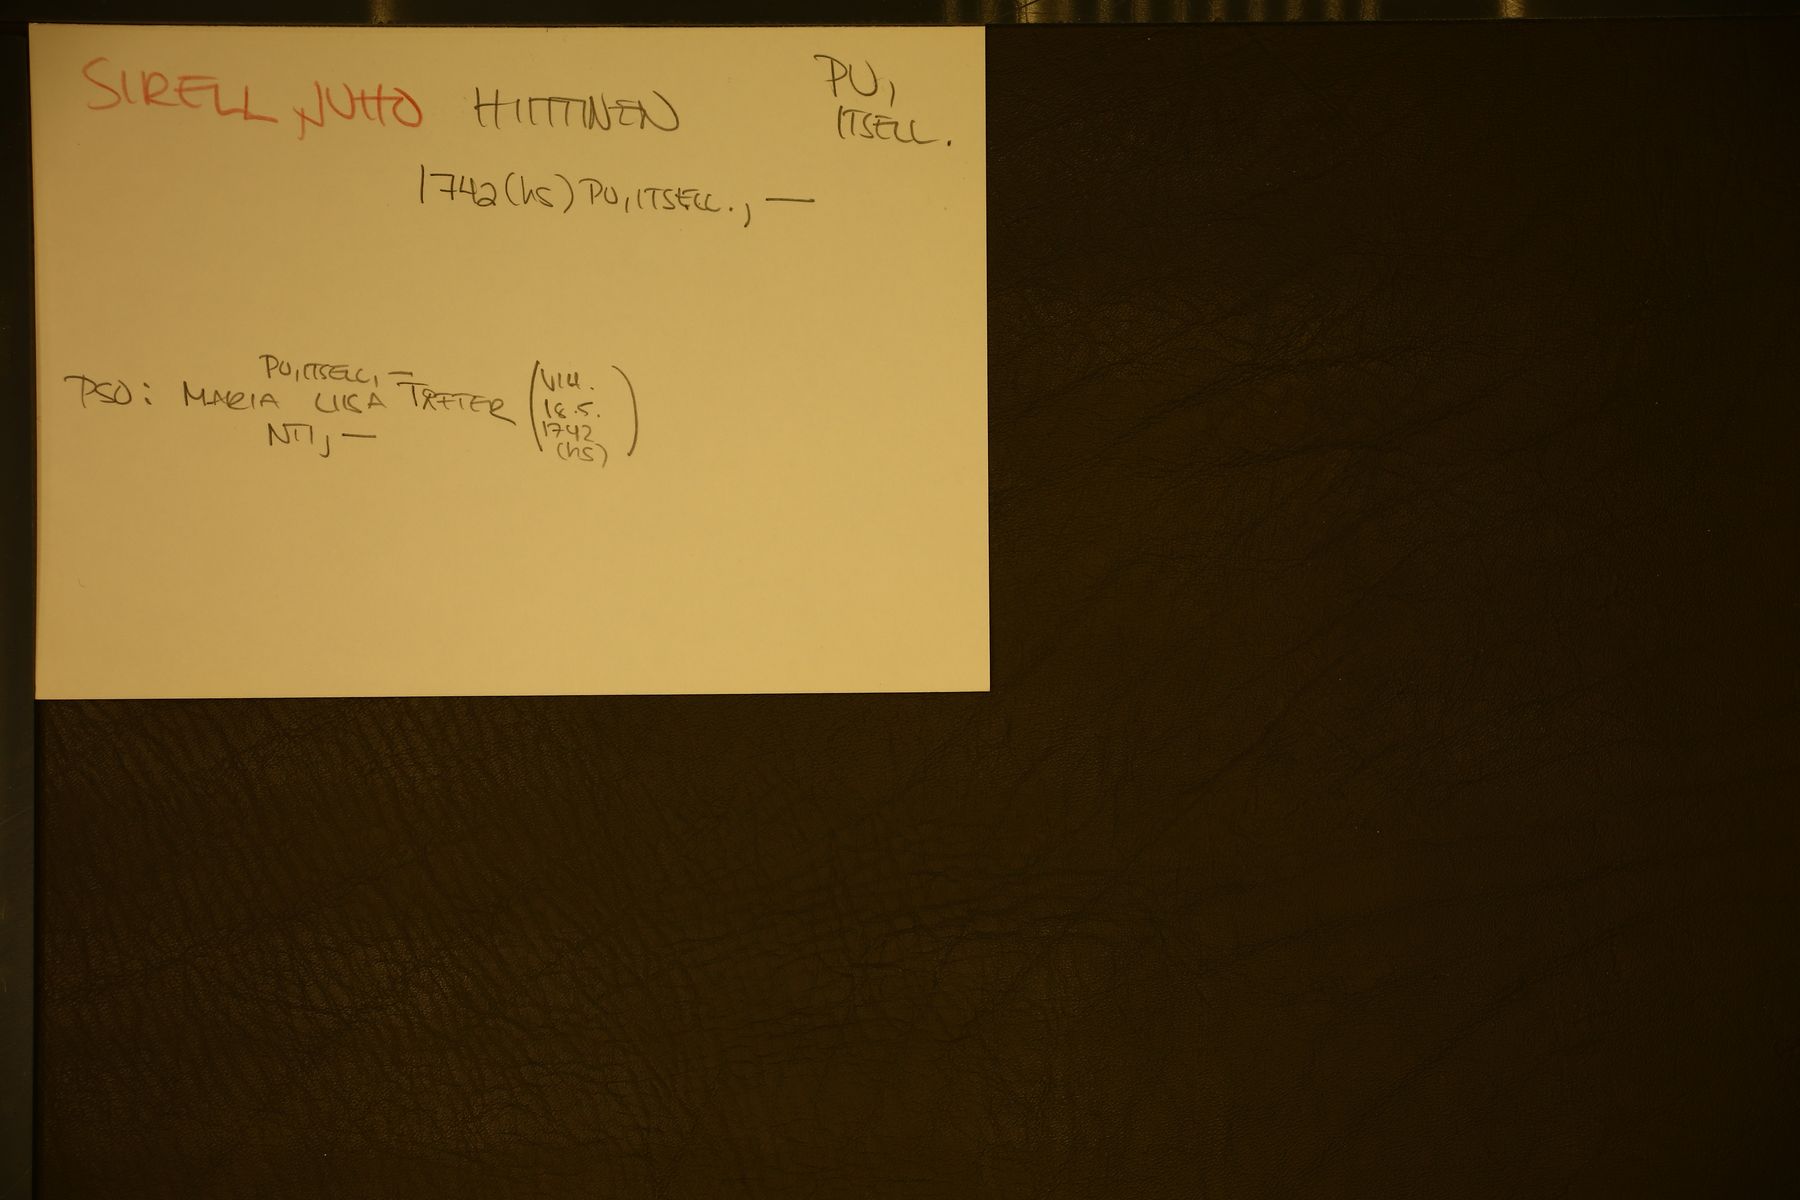 SIRELL, JUHO HIITTINEN PU,
ITSELL.
1742 (hS) PU, ITSELL., —
PU, ITSELL, —
PSO: MARIA LIISA TRÆTER (VIH.
NTI, — 18.5.
1742
(hS))